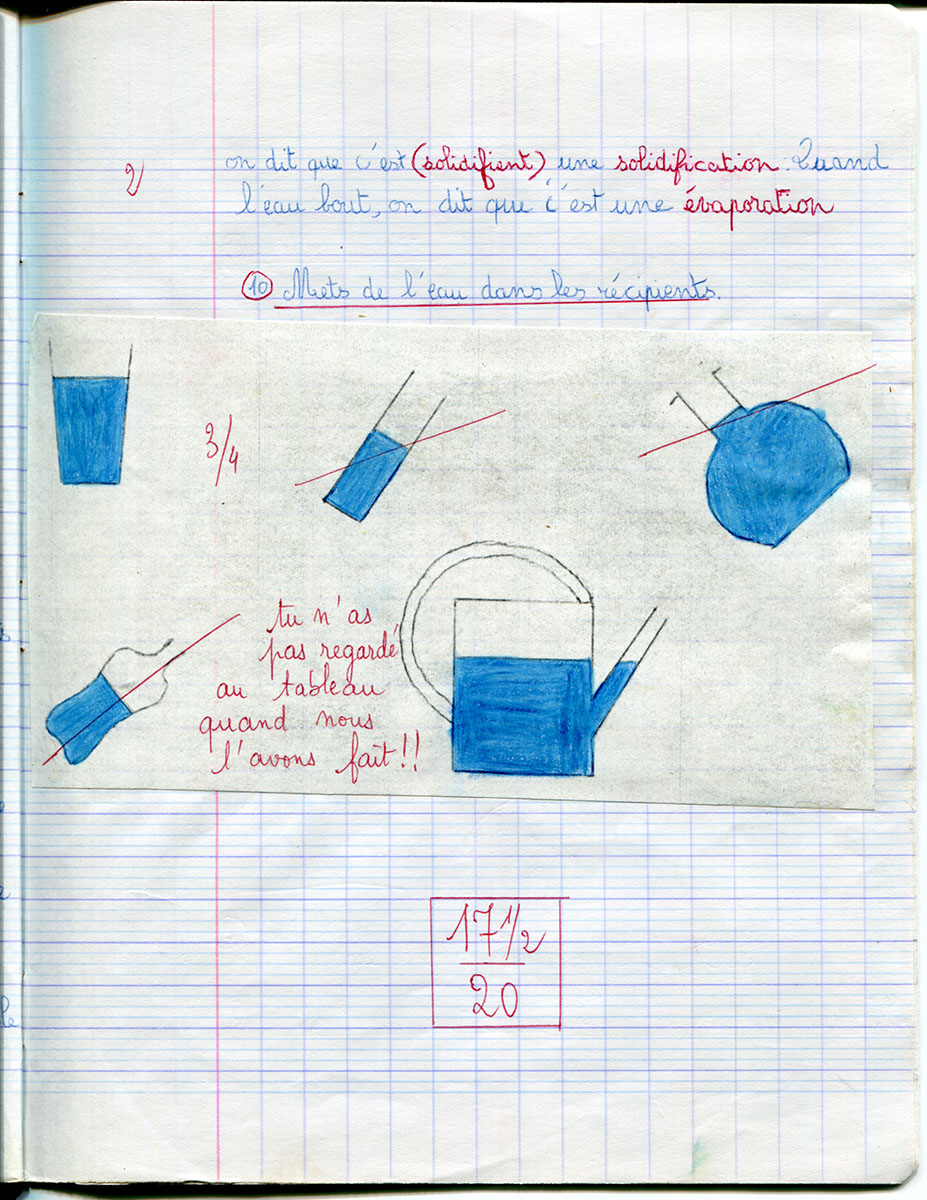 on dit que c'est (solidifient) une solidification. Quand
2
l'eau bout, on dit que c'est une évaporation
10 Mets de l'eau dans les récipients.
3/4
tu n'as
pas regardé
au tableau
quand nous
l'avons fait!!
17 1/2
20